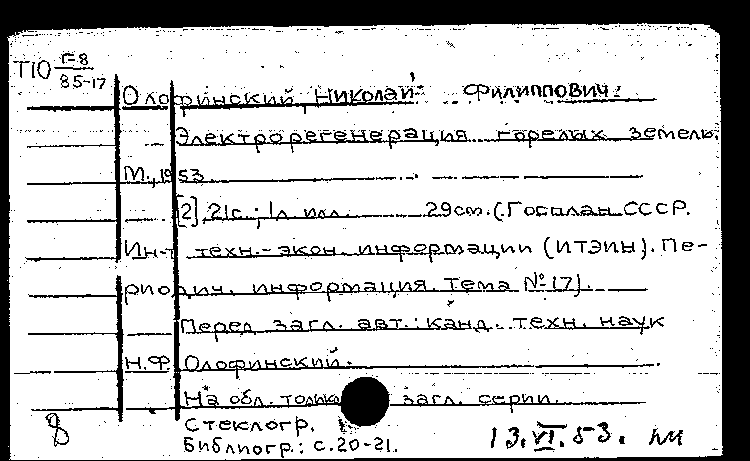 Т10 Г-8
85-17
Олофинский, Николай Филиппович.
Электрорегенерация горелых земель.
М., 1953
[2], 21с.; 1л. илл. 29см. (Госплан СССР.
Ин-т техн.-экон. информации (ИТЭИН). Пе-
риодич. информация. Тема №17).
Перед загл. авт.: канд. техн. наук
Н.Ф. Олофинский.
На обл. только загл. серии.
Стеклогр.
Библиогр.: с.20-21.
8 13.VI.53.